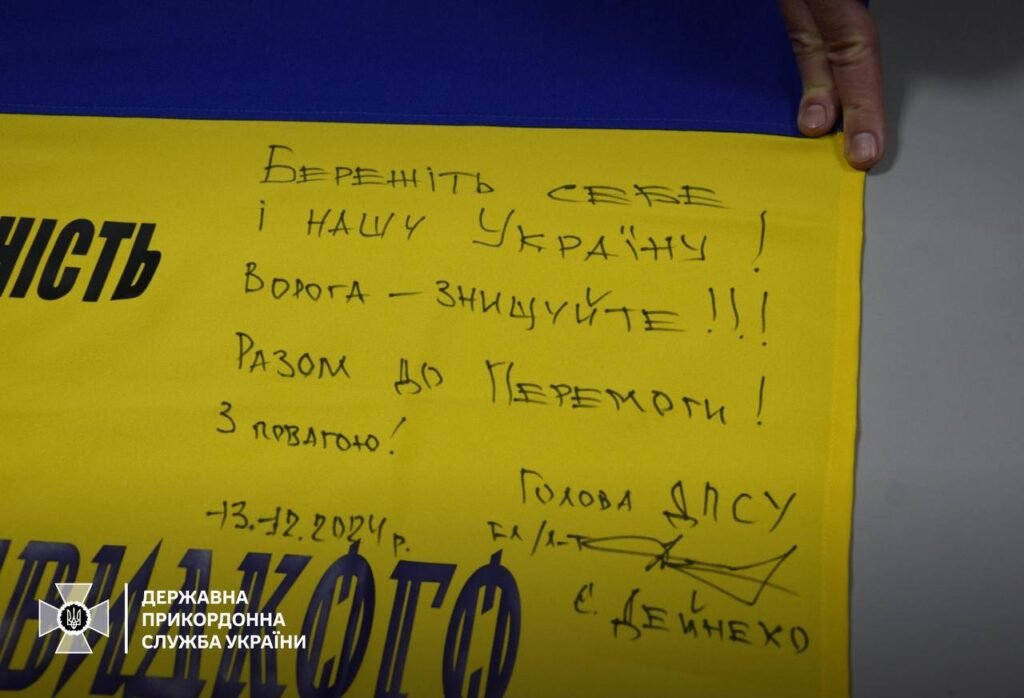 Бережіть себе
і нашу Україну!
НІСТЬ
Ворога – знищуйте!!!
Разом до Перемоги!
З повагою!
Голова ДПСУ
13.12.2024 р.
г-л/л-т
Є. Дейнеко
ВИДКОГО
ДЕРЖАВНА
ПРИКОРДОННА
СЛУЖБА УКРАЇНИ